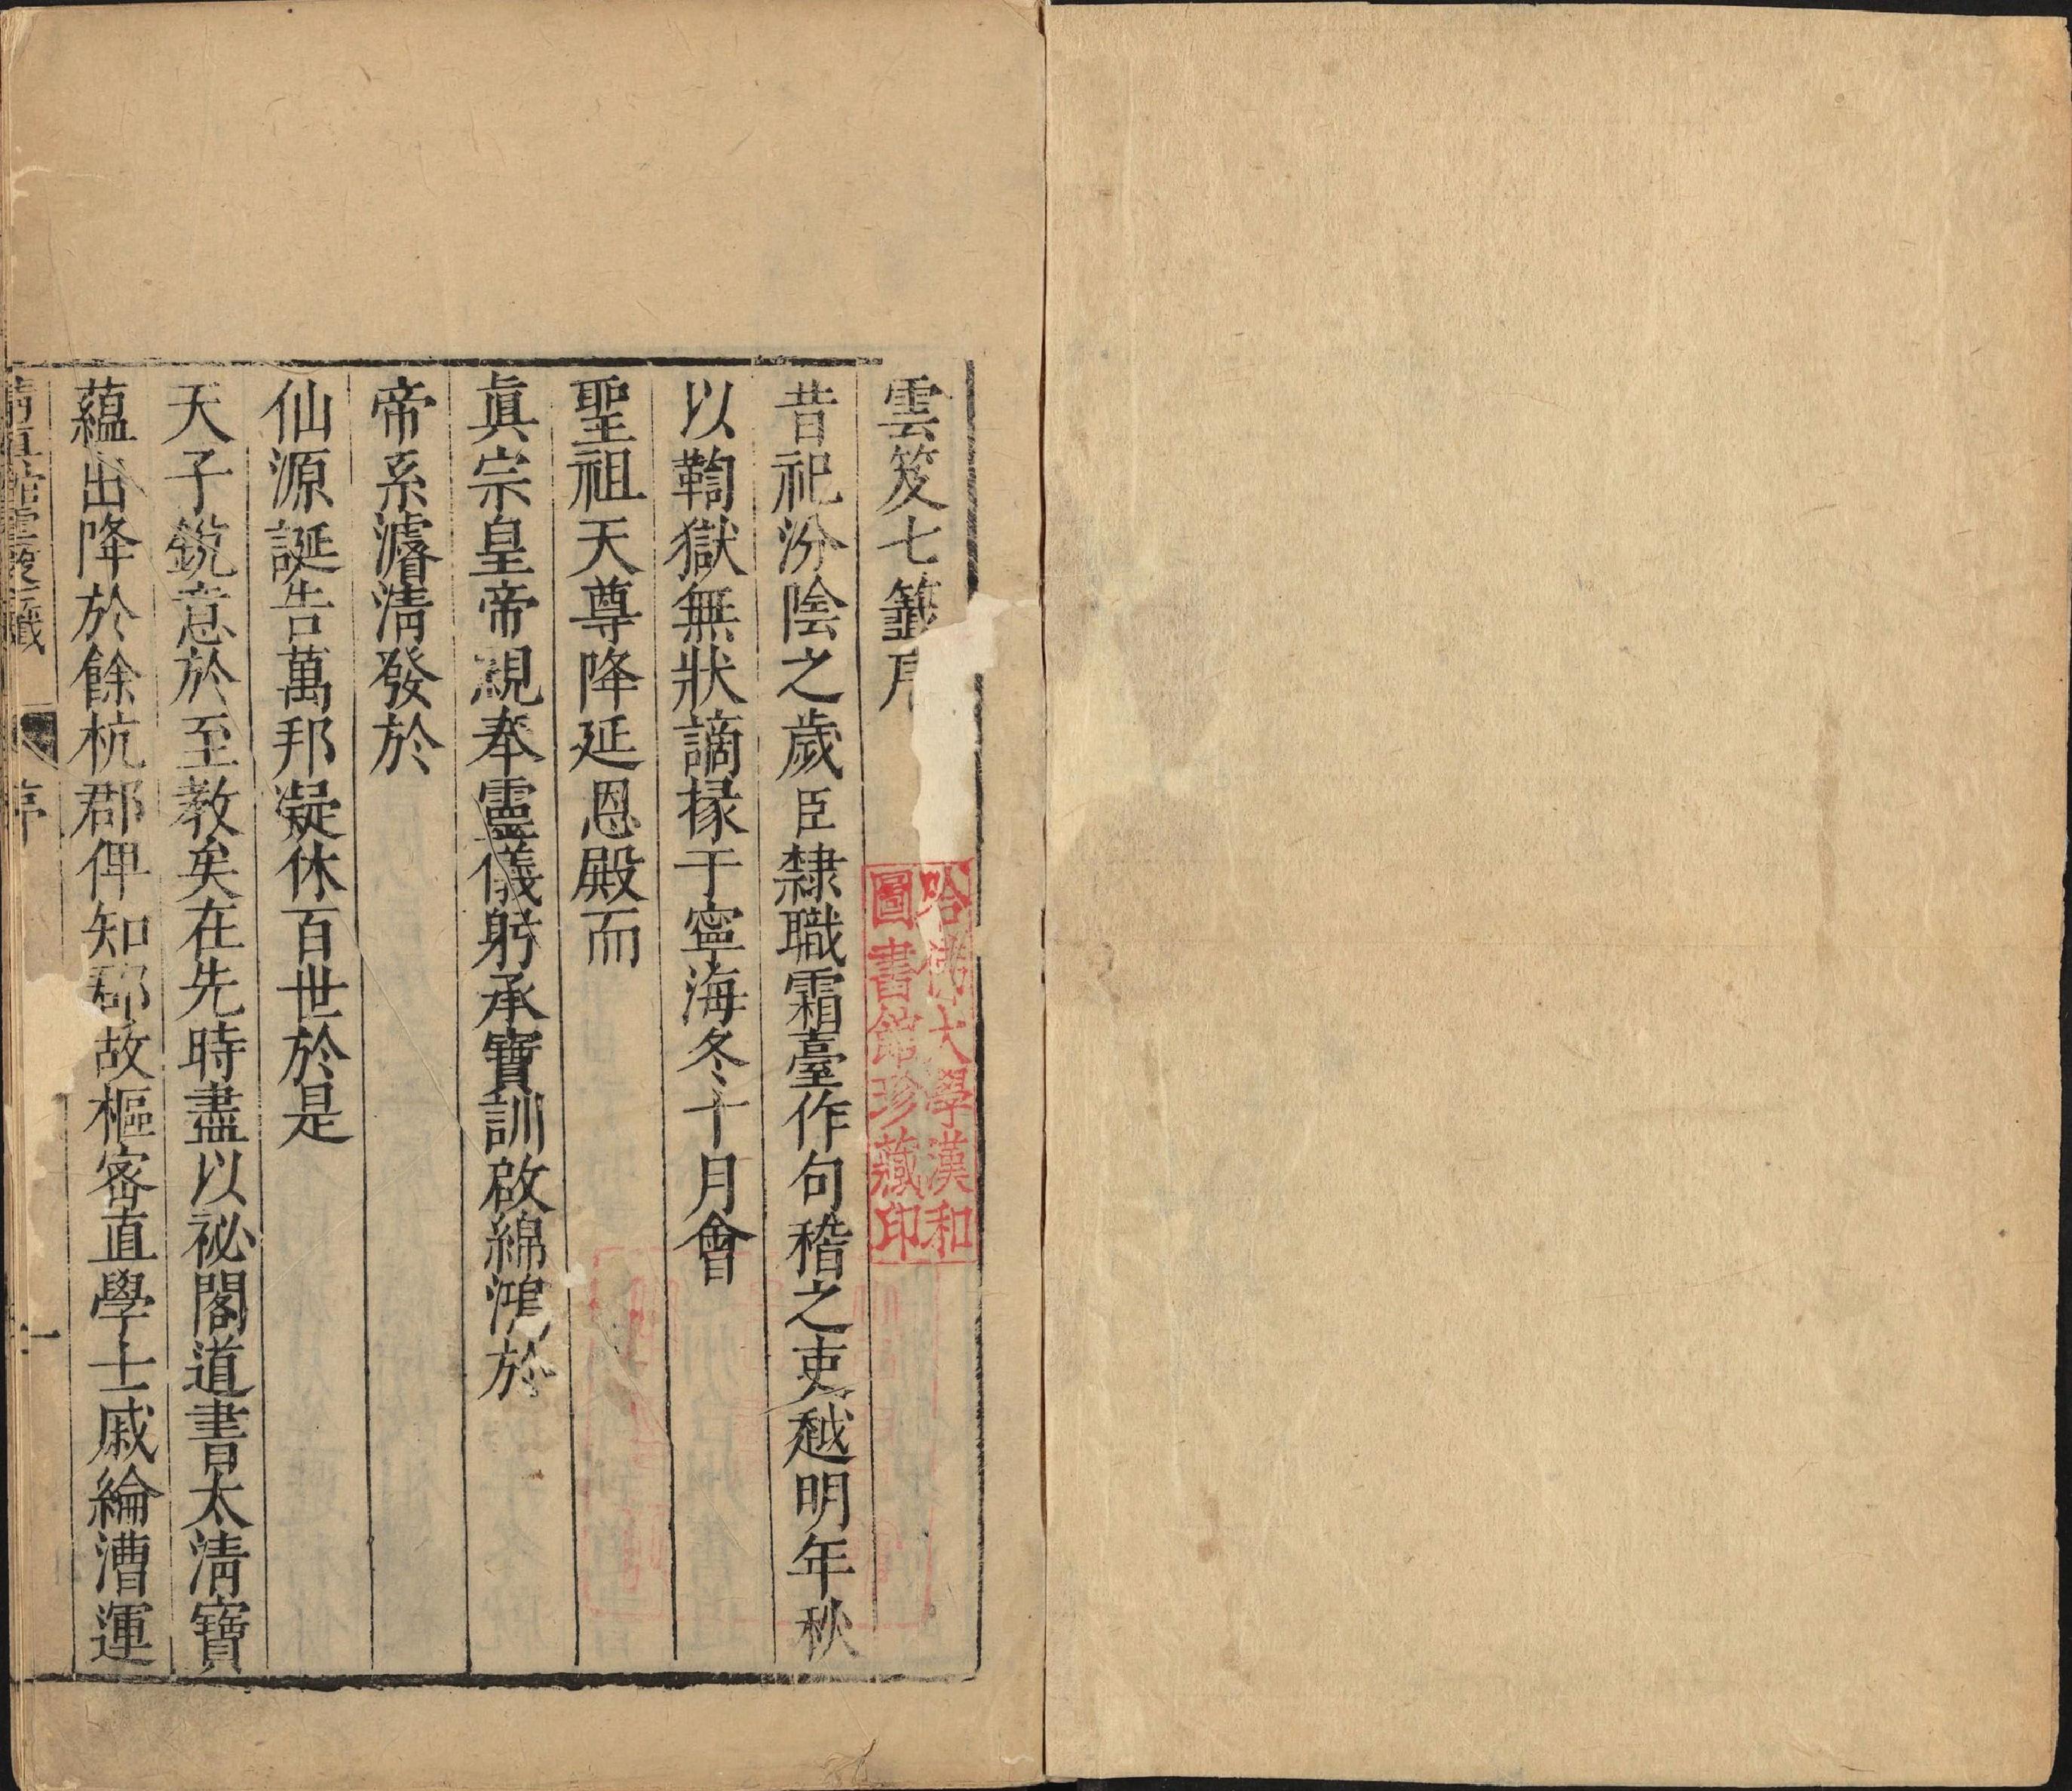 雲笈七籤序
昔祀汾隂之歲臣隸職霜臺作句稽之吏越明年秋
以鞫獄無狀謫掾于寧海冬十月會
聖祖天尊降延恩殿而
眞宗皇帝親奉靈儀躬承寶訓啟綿鴻於
帝系濬淸發於
仙源誕告萬邦凝休百世於是
天子銳意於至教矣在先時盡以祕閣道書太淸寶
蘊出降於餘杭郡俾知郡故樞密直學士戚綸漕運
淸眞館雲笈七籤 序 一
哈佛大學漢和
圖書館珍藏印